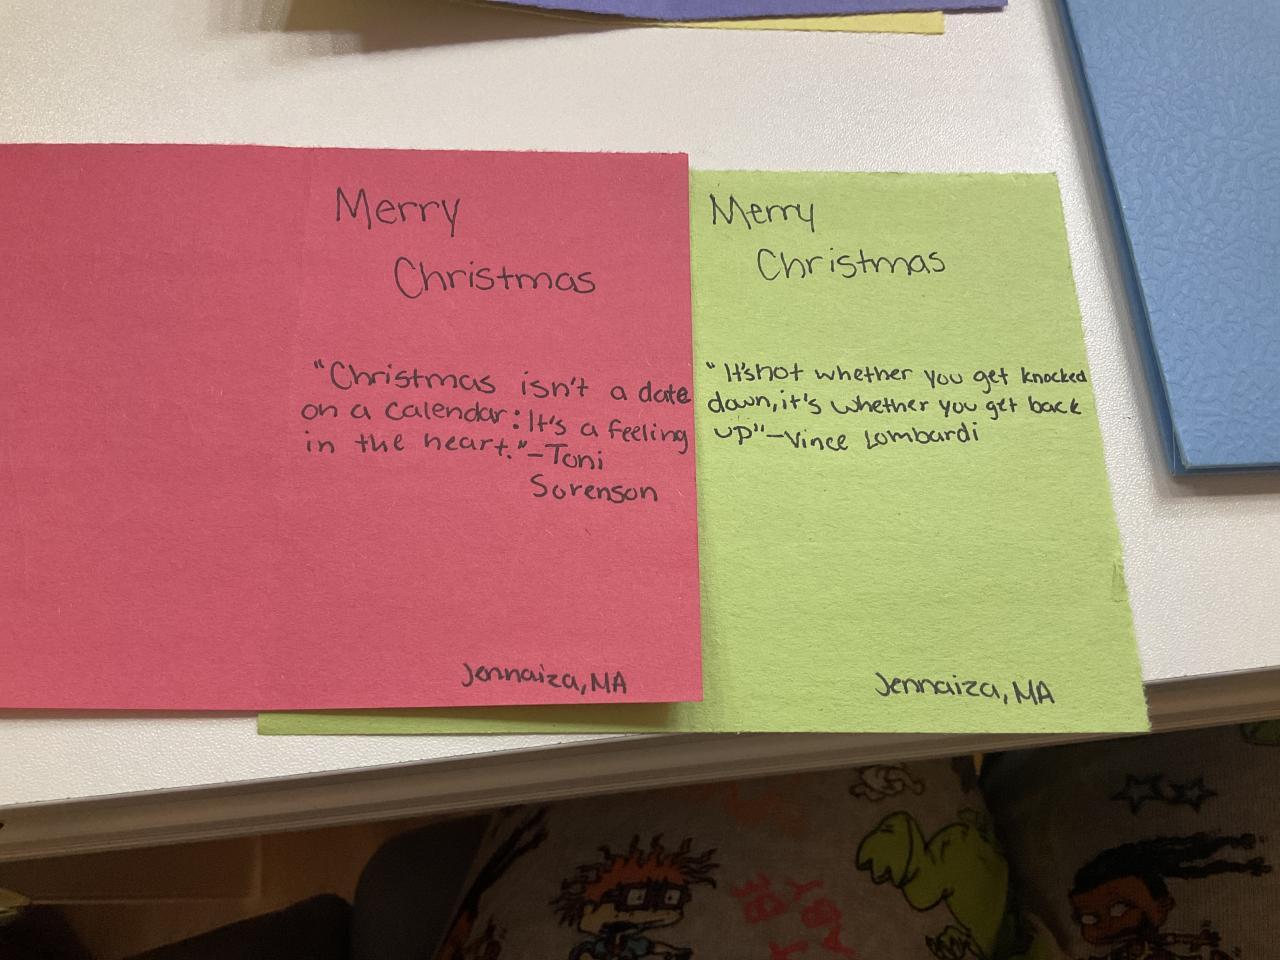 Merry
Christmas
"Christmas isn't a date
on a calendar: It's a feeling
in the heart." -Toni
Sorenson
Jennaiza, MA
Merry
Christmas
"It's not whether you get knocked
down, it's whether you get back
up" -Vince Lombardi
Jennaiza, MA